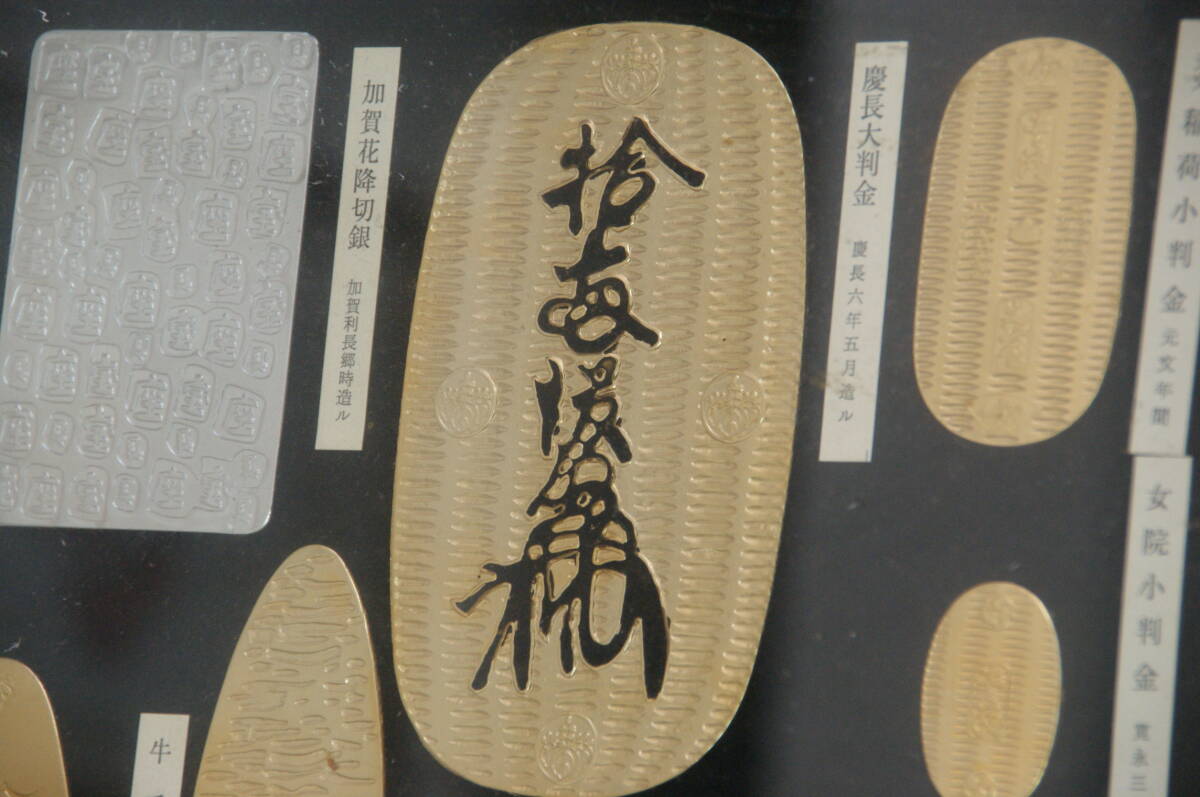 加賀花降切銀 加賀利長郷時造ル
拾両後藤
慶長大判金 慶長六年五月造ル
稲荷小判金 元文年間
女院小判金 寛永三
牛